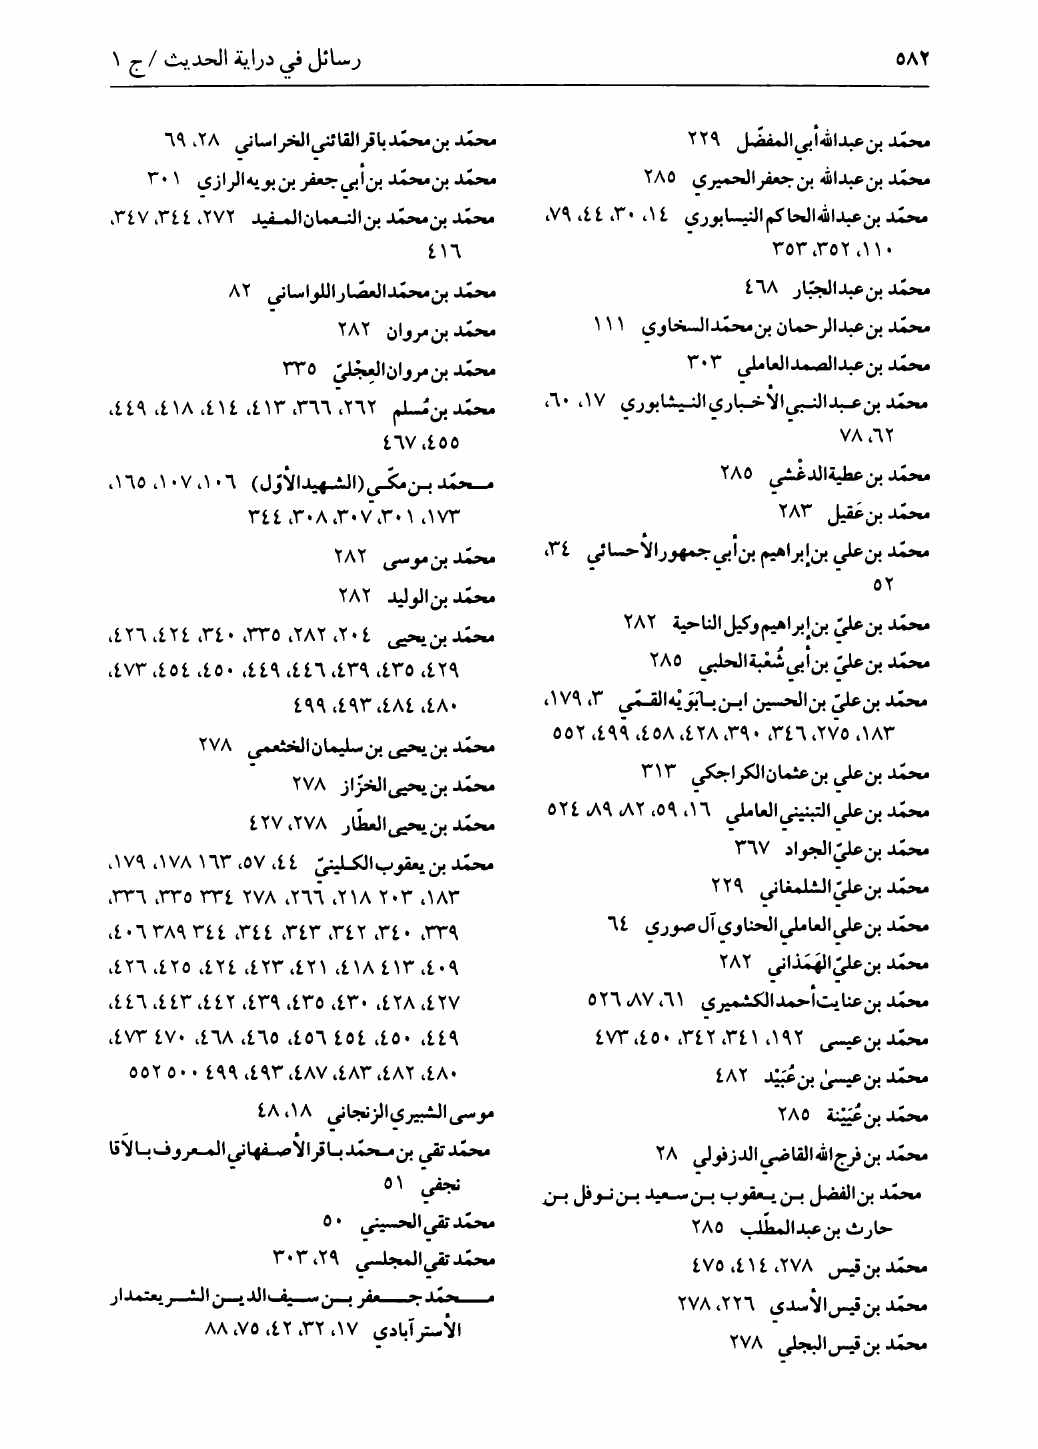 ٥٨٢
رسائل في دراية الحديث / ج ١
محمّد بن عبدالله أبي المفضّل ٢٢٩
محمّد بن عبدالله بن جعفر الحميري ٢٨٥
محمّد بن عبدالله الحاكم النيسابوري ١٤، ٣٠، ٤٤، ٧٩،
١١٠، ٣٥٢، ٣٥٣
محمّد بن عبدالجبّار ٤٦٨
محمّد بن عبدالرحمان بن محمّد السخاوي ١١١
محمّد بن عبدالصمد العاملي ٣٠٣
محمّد بن عبدالنبي الأخباري النيشابوري ١٧، ٦٠،
٦٢، ٧٨
محمّد بن عطية الدغْشي ٢٨٥
محمّد بن عَقيل ٢٨٣
محمّد بن علي بن إبراهيم بن أبي جمهور الأحسائي ٣٤،
٥٢
محمّد بن عليّ بن إبراهيم وكيل الناحية ٢٨٢
محمّد بن عليّ بن أبي شُعْبة الحلبي ٢٨٥
محمّد بن عليّ بن الحسين ابن بابَوَيْه القمّي ٣، ١٧٩،
١٨٣، ٢٧٥، ٣٤٦، ٣٩٠، ٤٢٨، ٤٥٨، ٤٩٩، ٥٥٢
محمّد بن علي بن عثمان الكراجكي ٣١٣
محمّد بن علي التبنيني العاملي ١٦، ٥٩، ٨٢، ٨٩، ٥٢٤
محمّد بن عليّ الجواد ٣٦٧
محمّد بن عليّ الشلمغاني ٢٢٩
محمّد بن علي العاملي الحناوي آل صوري ٦٤
محمّد بن عليّ الهَمْذاني ٢٨٢
محمّد بن عنايت أحمد الكشميري ٦١، ٨٧، ٥٢٦
محمّد بن عيسى ١٩٢، ٣٤١، ٣٤٢، ٤٥٠، ٤٧٣
محمّد بن عيسىٰ بن عُبَيْد ٤٨٢
محمّد بن عُيَيْنة ٢٨٥
محمّد بن فرج الله القاضي الدزفولي ٢٨
محمّد بن الفضل بن يعقوب بن سعيد بن نوفل بن
حارث بن عبدالمطّلب ٢٨٥
محمّد بن قيس ٢٧٨، ٤١٤، ٤٧٥
محمّد بن قيس الأسدي ٢٢٦، ٢٧٨
محمّد بن قيس البجلي ٢٧٨
محمّد بن محمّد باقر القائني الخراساني ٢٨، ٦٩
محمّد بن محمّد بن أبي جعفر بن بويه الرازي ٣٠١
محمّد بن محمّد بن النعمان المفيد ٢٧٢، ٣٤٤، ٣٤٧،
٤١٦
محمّد بن محمّد العصّار اللواساني ٨٢
محمّد بن مروان ٢٨٢
محمّد بن مروان العِجْليّ ٣٣٥
محمّد بن مُسلم ٢٦٢، ٣٦٦، ٤١٣، ٤١٤، ٤١٨، ٤٤٩،
٤٥٥، ٤٦٧
محمّد بن مكّي (الشهيد الأوّل) ١٠٦، ١٠٧، ١٦٥،
١٧٣، ٣٠١، ٣٠٧، ٣٠٨، ٣٤٤
محمّد بن موسى ٢٨٢
محمّد بن الوليد ٢٨٢
محمّد بن يحيى ٢٠٤، ٢٨٢، ٣٣٥، ٣٤٠، ٤٢٤، ٤٢٦،
٤٢٩، ٤٣٥، ٤٣٩، ٤٤٦، ٤٤٩، ٤٥٠، ٤٥٤، ٤٧٣،
٤٨٠، ٤٨٤، ٤٩٣، ٤٩٩
محمّد بن يحيى بن سليمان الخثعمي ٢٧٨
محمّد بن يحيى الخزّاز ٢٧٨
محمّد بن يحيى العطّار ٢٧٨، ٤٢٧
محمّد بن يعقوب الكلينيّ ٤٤، ٥٧، ١٦٣ ١٧٨، ١٧٩،
١٨٣، ٢٠٣ ٢١٨، ٢٦٦، ٢٧٨ ٣٣٤ ٣٣٥، ٣٣٦،
٣٣٩، ٣٤٠، ٣٤٢ ٣٤٣، ٣٤٤، ٣٤٤ ٣٨٩ ٤٠٦،
٤٠٩، ٤١٣ ٤١٨، ٤٢١، ٤٢٣، ٤٢٤، ٤٢٥، ٤٢٦،
٤٢٧، ٤٢٨، ٤٣٠، ٤٣٥، ٤٣٩، ٤٤٢، ٤٤٣، ٤٤٦،
٤٤٩، ٤٥٠، ٤٥٤ ٤٥٦، ٤٦٥، ٤٦٨، ٤٧٠ ٤٧٣،
٤٨٠، ٤٨٢، ٤٨٣، ٤٨٧، ٤٩٣، ٤٩٩ ٥٠٠ ٥٥٢
موسى الشبيري الزنجاني ١٨، ٤٨
محمّد تقي بن محمّد باقر الأصفهاني المعروف بالآقا
نجفي ٥١
محمّد تقي الحسيني ٥٠
محمّد تقي المجلسي ٢٩، ٣٠٣
محمّد جعفر بن سيف الدين الشريعتمدار
الأسترآبادي ١٧، ٣٢، ٤٢، ٧٥، ٨٨